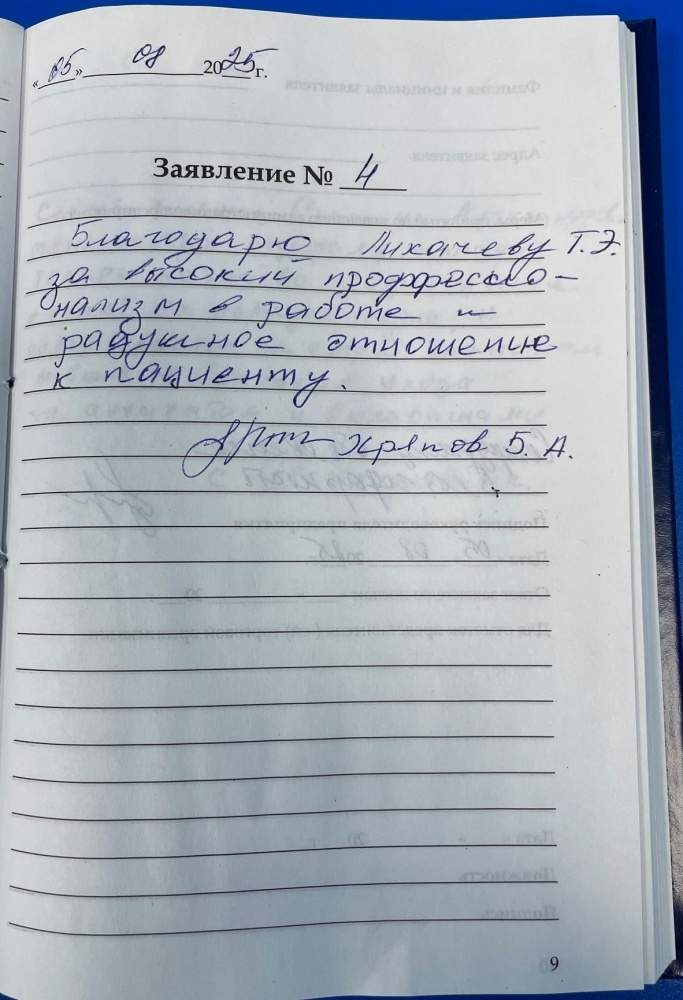 «05» 08 2025 г.
Заявление № 4
Благодарю Лихачеву Т.Э.
за высокий проффессио-
нализм в работе и
радушное отношение
к пациенту.
Хряпов Б. А.
9